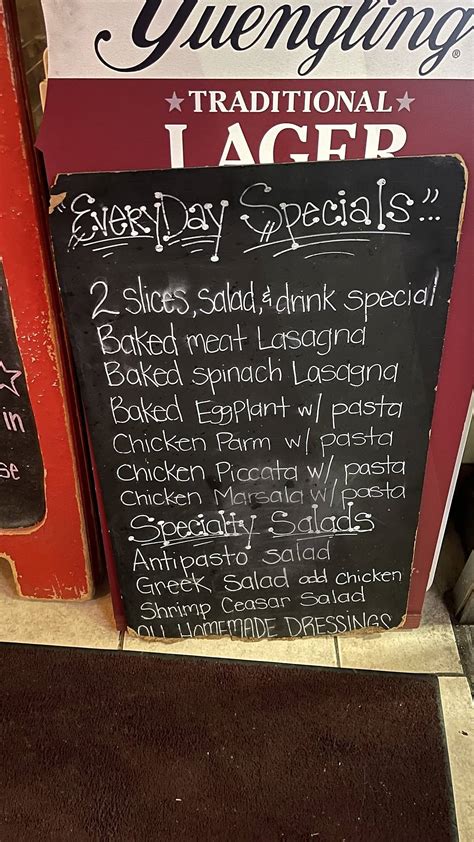 Yuengling®
TRADITIONAL
LAGER
"EveryDay Specials"..
2 slices, salad, & drink special
Baked meat Lasagna
Baked spinach Lasagna
Baked EggPlant w/ pasta
Chicken Parm w/ pasta
Chicken Piccata w/ pasta
Chicken Marsala w/ pasta
Specialty Salads
Antipasto salad
Greek Salad add chicken
Shrimp Ceasar Salad
All HOMEMADE DRESSINGS
in
se